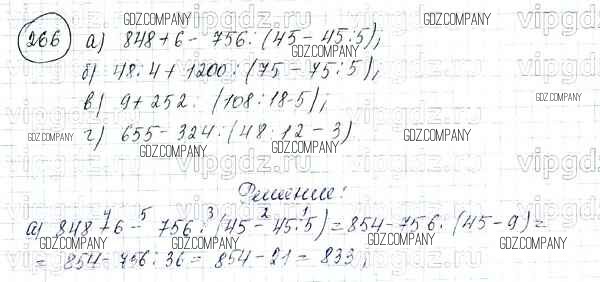 266 а) 848+6-756:(45-45:5);
б) 48:4+1200:(75-75:5);
в) 9+252:(108:18-5);
г) 655-324:(48:12-3)
Решение:
а) 848+6-756:(45-45:5)=854-756:(45-9)=
=854-756:36=854-21=833;
GDZ.COMPANY
vipgdz.ru